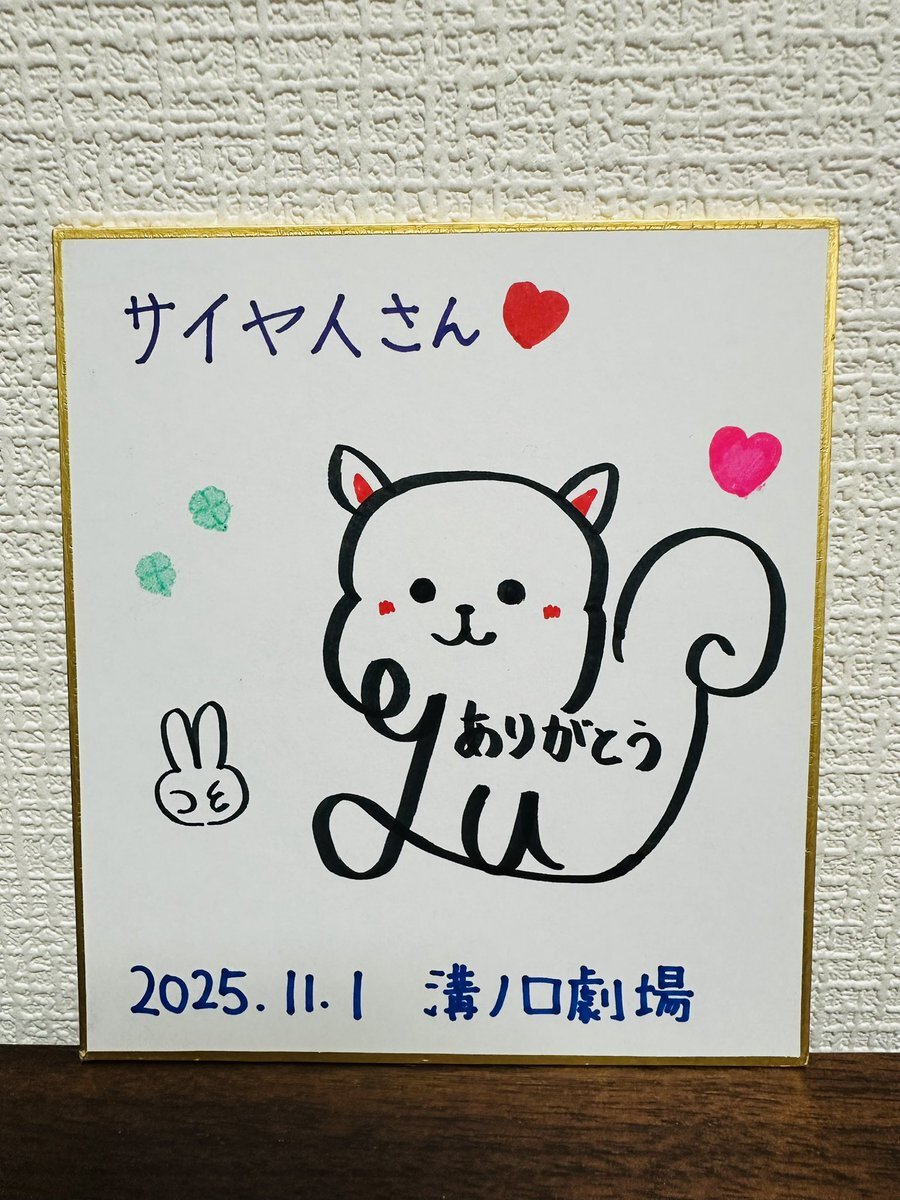 サイヤ人さん
ありがとう
Lu
2025.11.1 溝ノ口劇場